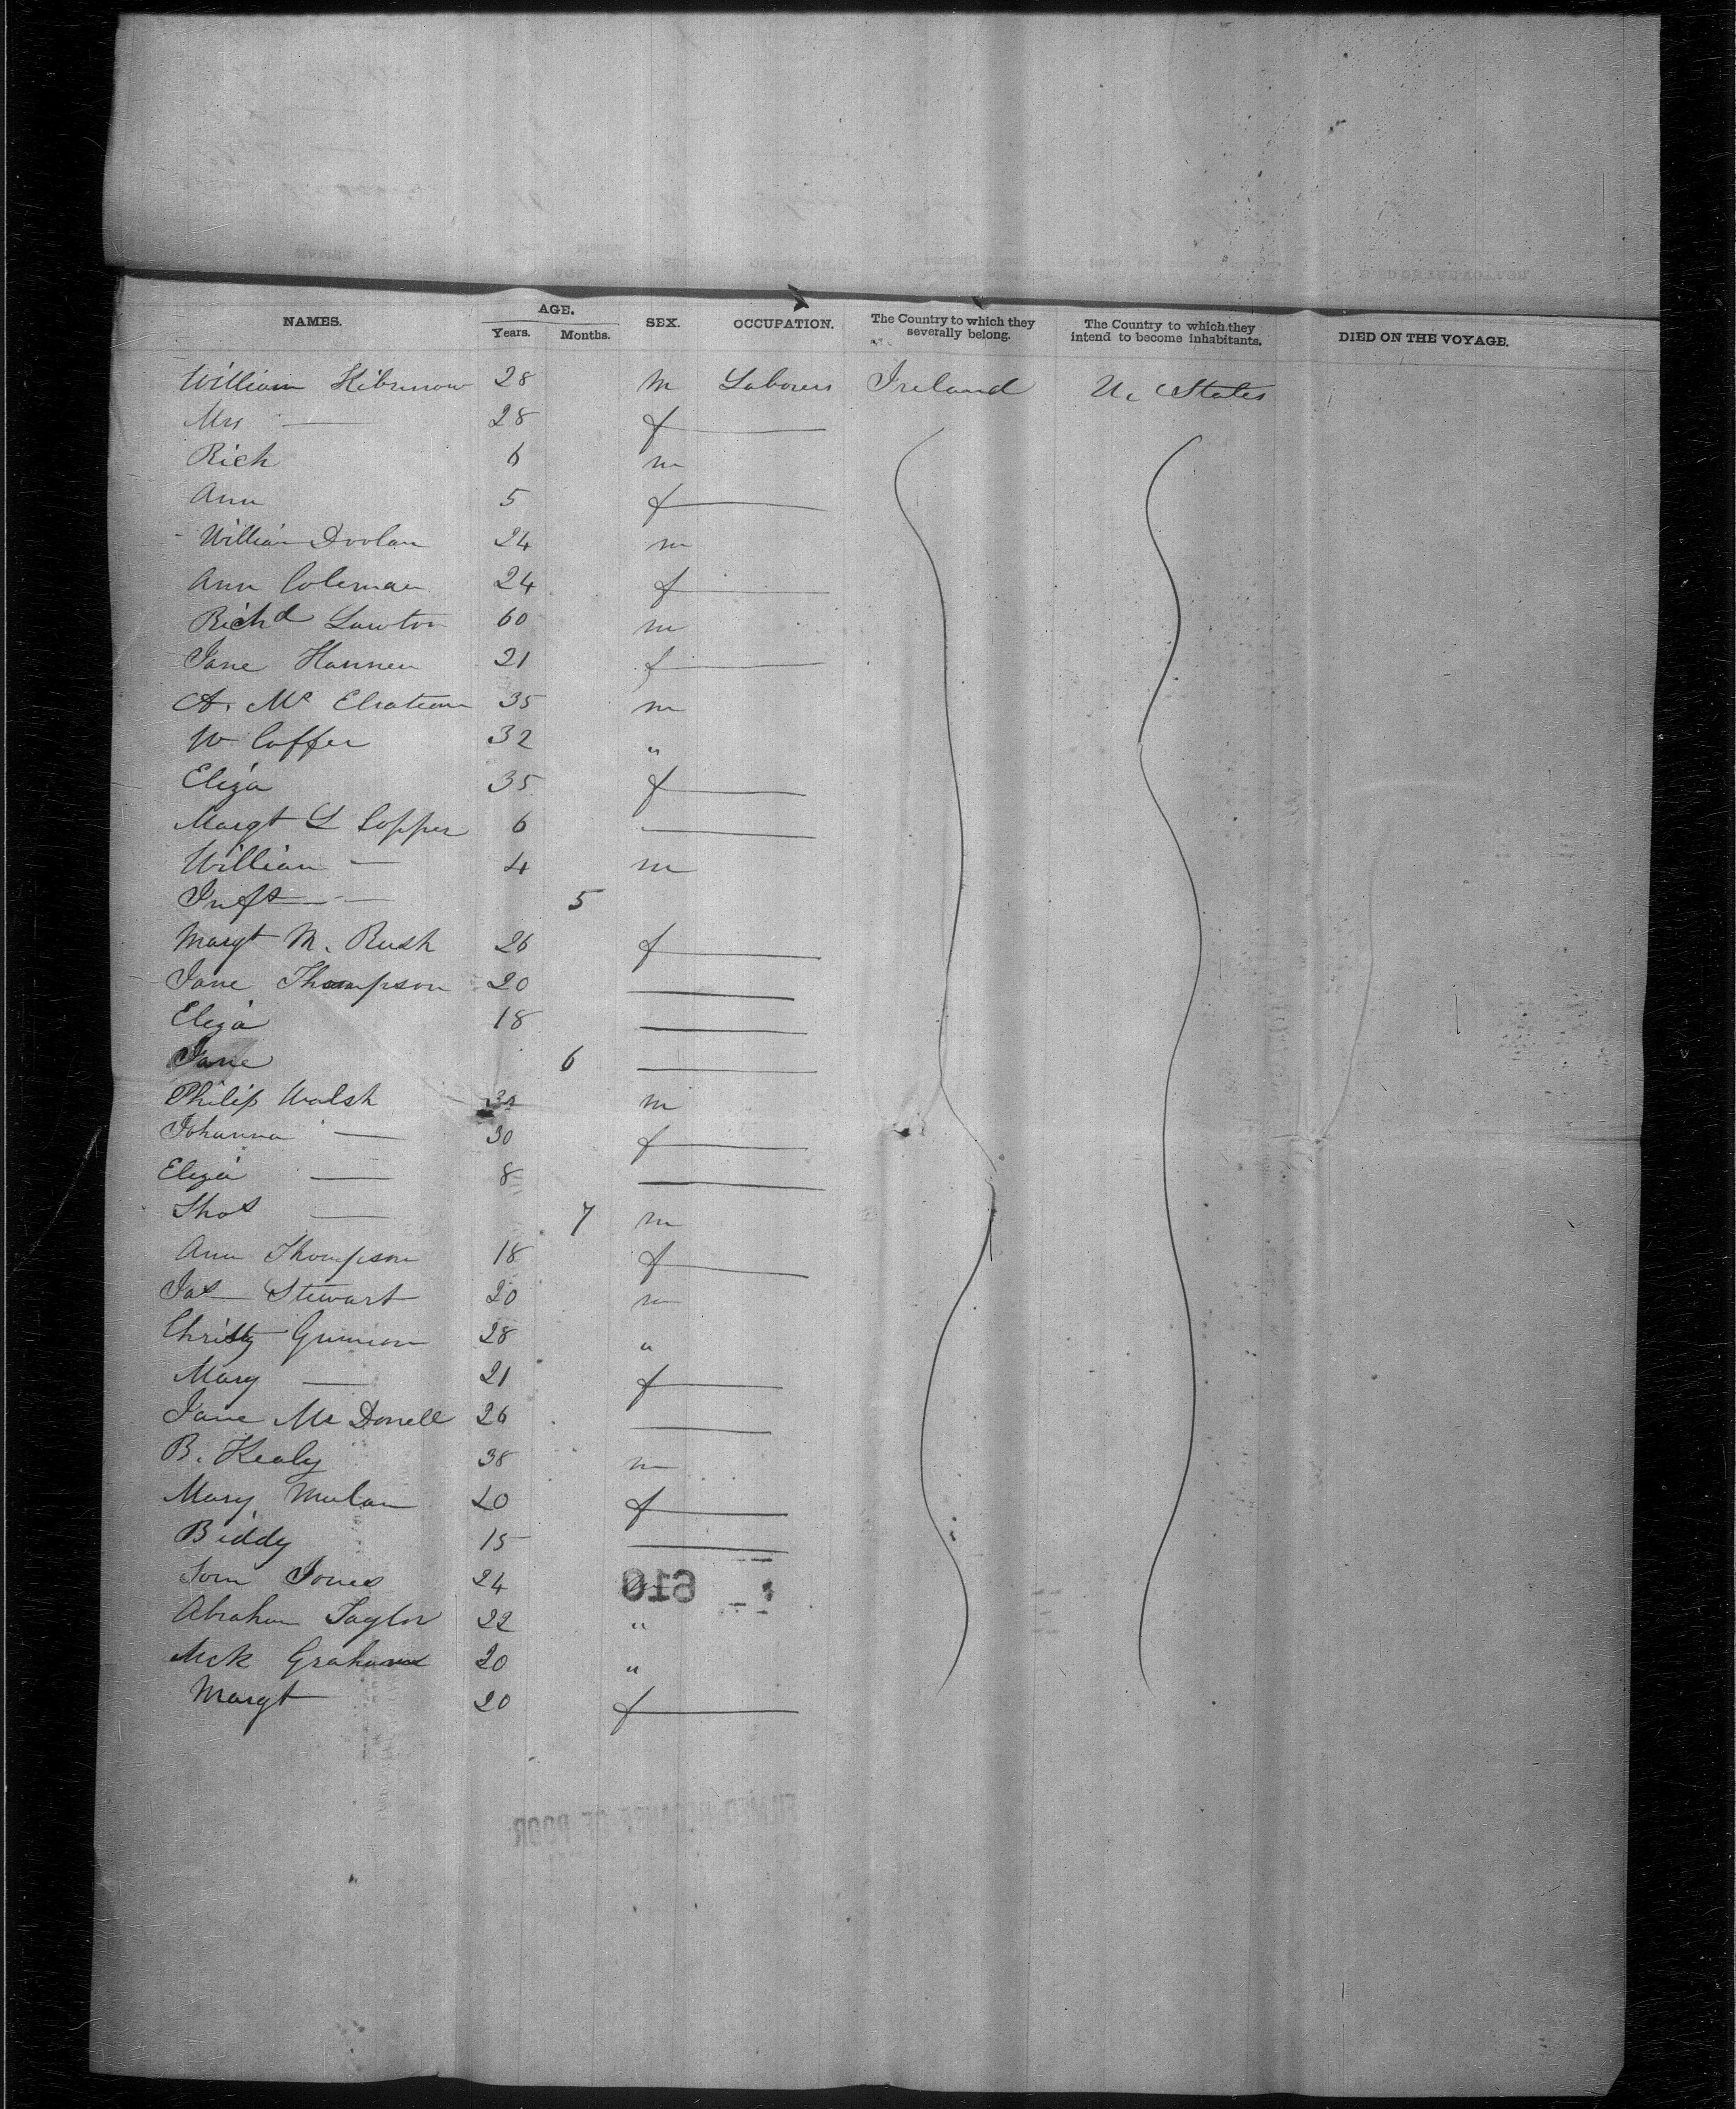 NAMES. AGE. Years. Months. SEX. OCCUPATION. The Country to which they severally belong. The Country to which they intend to become inhabitants. DIED ON THE VOYAGE.
William 28 m Laborers Ireland U. States
Mrs — 28 f
Rich 6 m
Ann 5 f
William Doolan 24 m
Ann Coleman 24 f
Richd Lawton 60 m
Jane Hannen 21 f
A. Mc 35 m
W Coffer 32 "
Eliza 35 f
Margt L Copper 6
William — 4 m
Inft — 5
Margt M. Rush 26 f
Jane Thompson 20
Eliza 18
Jane 6
Philip Walsh m
Johanna — 30 f
Eliza — 8
Thos — 7 m
Ann Thompson 18 f
Jas Stewart 20 m
Christy 28 "
Mary — 21 f
Jane Mc Donell 26
B. Kealy 38 m
Mary Mulan 20 f
Biddy 15
Tom Jones 24
610
Abraham Taylor 22 "
Graham 20 "
Margt 20 f
FILMED BECAUSE OF POOR